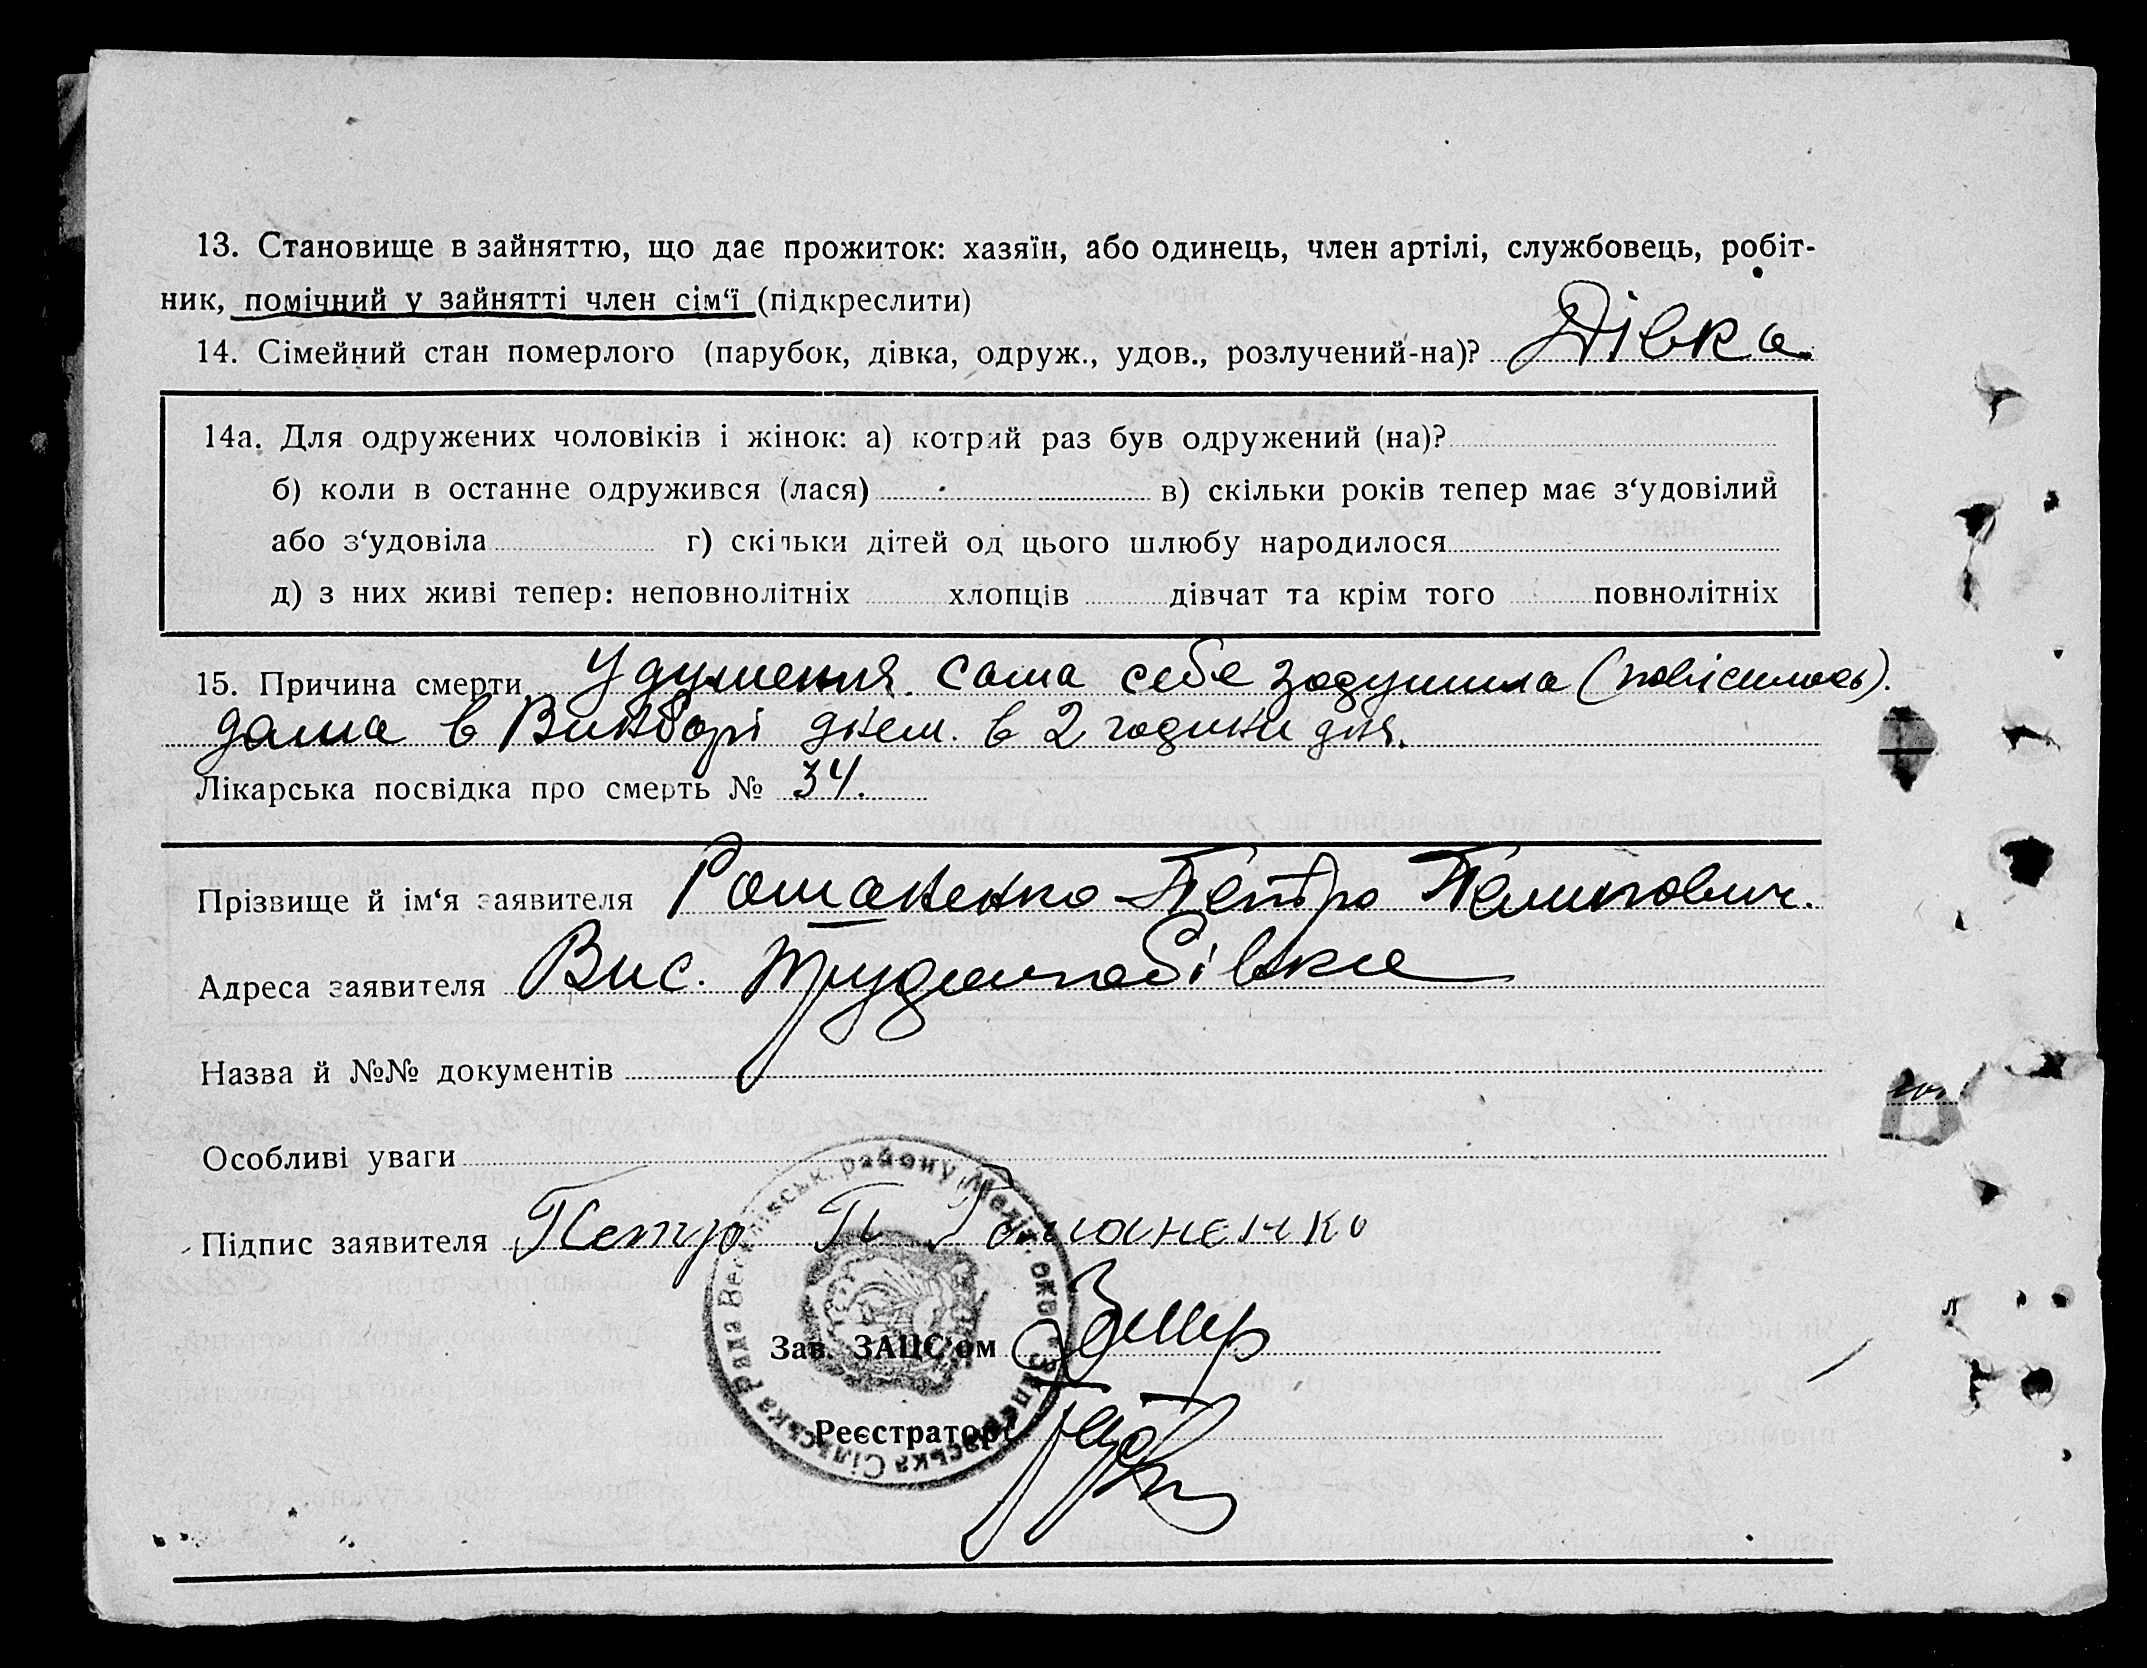 13. Становище в зайняттю, що дає прожиток: хазяїн, або одинець, член артілі, службовець, робіт-
ник, помічний у зайнятті член сім‘ї (підкреслити)
14. Сімейний стан померлого (парубок, дівка, одруж., удов., розлучений-на)? Дівка
14а. Для одружених чоловіків і жінок: а) котрий раз був одружений (на)?
б) коли в останне одружився (лася) в) скільки років тепер має з‘удовілий
або з‘удовіла г) скільки дітей од цього шлюбу народилося
д) з них живі тепер: неповнолітніх хлопців дівчат та крім того повнолітніх
15. Причина смерти Удушення. Сама себе задушила (повісилась).
дома в днем. в 2 години дня.
Лікарська посвідка про смерть № 34.
Прізвище й ім‘я заявителя Романенко Петро Пилипович.
Адреса заявителя Вис. Трудолюбівка
Назва й №№ документів
Особливі уваги
Підпис заявителя Петро П Романенко
Зав. ЗАЦС‘ом
Реєстратор
Сільська Рада району Меліт. окр.